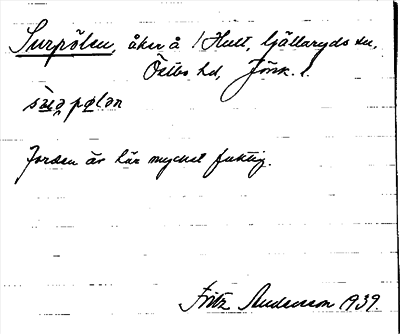 Surpölen, åker å 1 Hult, Gällaryds sn,
Östbo hd, Jönk. l.
Jorden är här mycket fuktig.
Fritz Andersson 1939